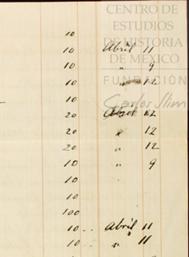 CENTRO DE
ESTUDIOS
DE HISTORIA
DE MÉXICO
FUNDACIÓN
Carlos Slim
10
10 Abril 11
10 " 9
10 " 12
10
20 Abril 12
20 " 12
20 " 12
10 " 9
10
10
100
10 Abril 11
10 " 11